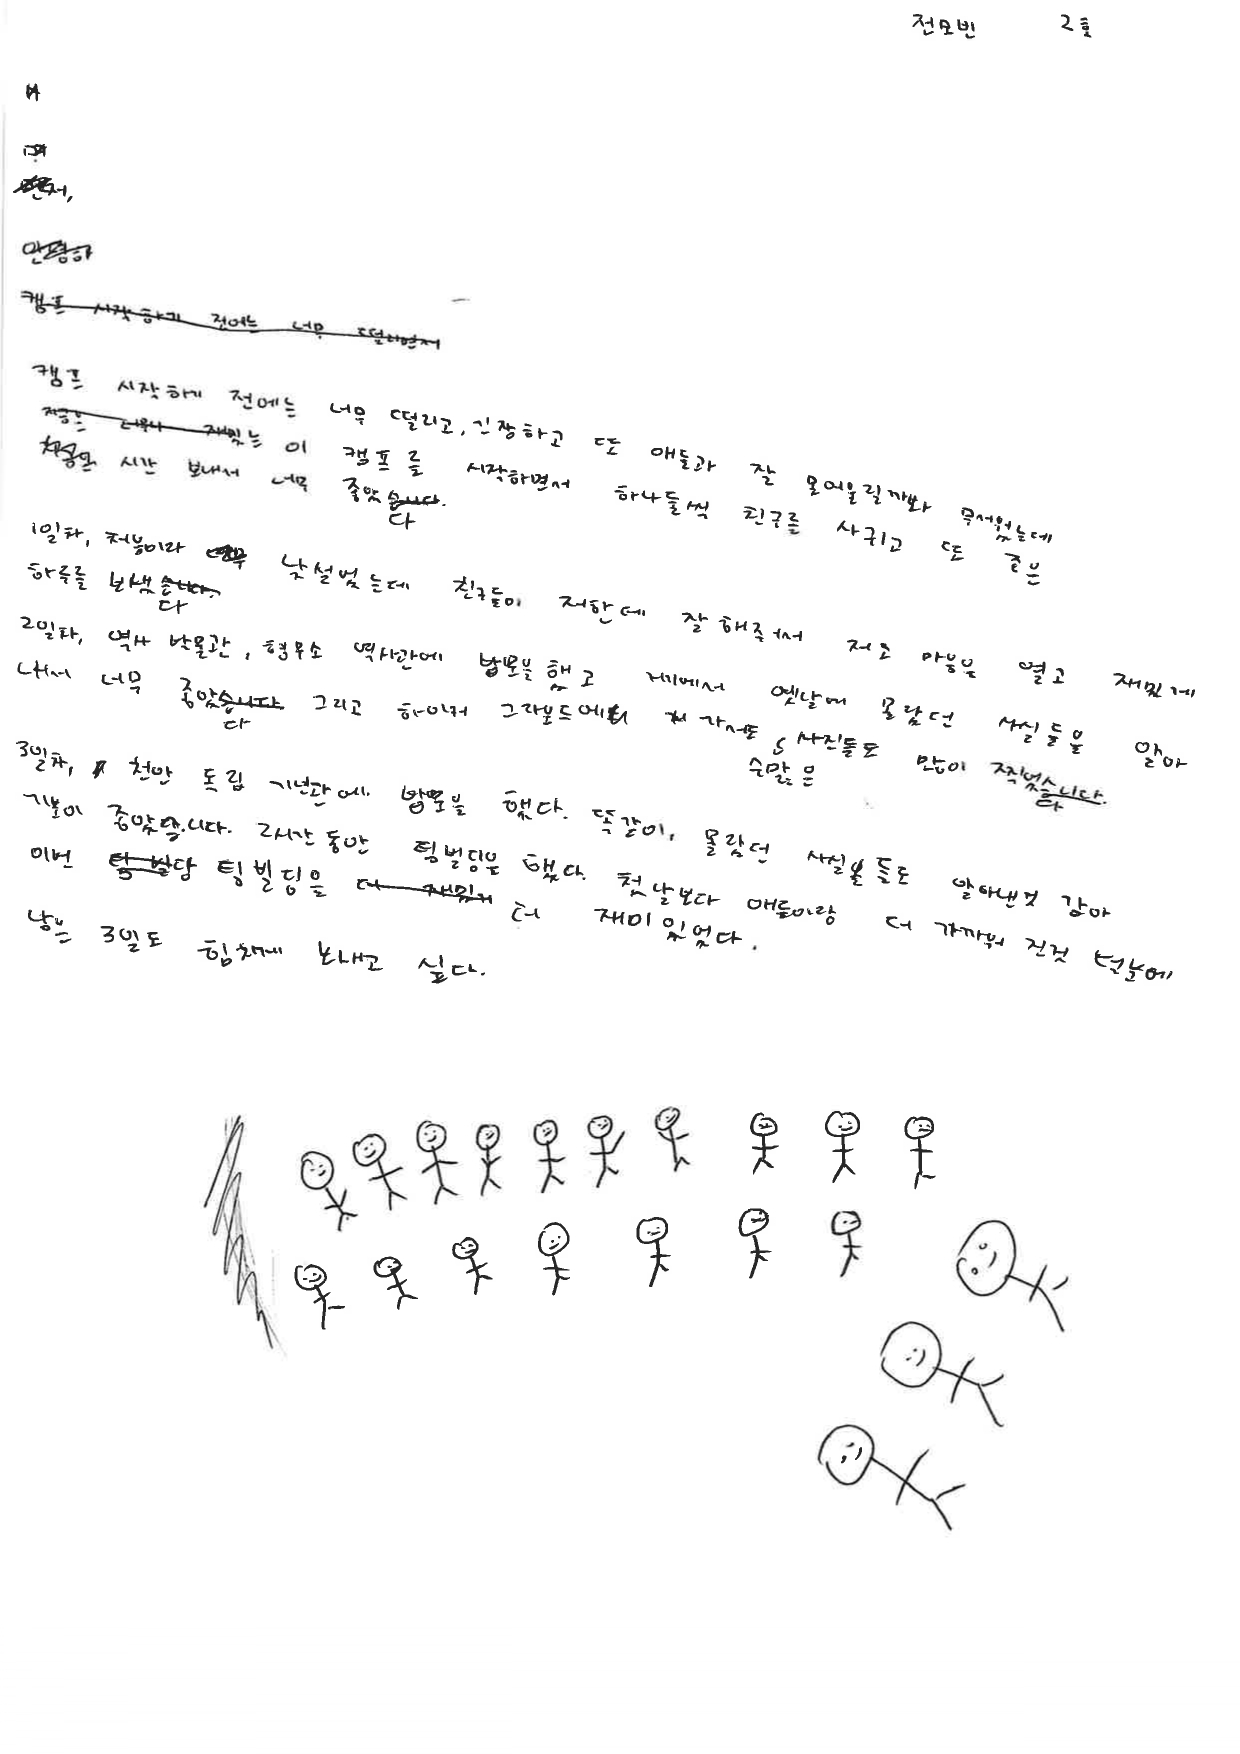 전모빈 2호
캠프 시작하기 전에는 너무 떨리면서
캠프 시작하기 전에는 너무 떨리고, 긴장하고 또 애들과 잘 못어울릴까봐 무서웠는데
이 캠프를 시작하면서 하나둘씩 친구를 사귀고 또 좋은
시간 보내서 너무 좋았다
1일차, 처음이라 낯설었는데 친구들이 저한테 잘 해주어서 저도 마음을 열고 재밌게
하루를 보냈다
2일차, 역사 박물관, 형무소 역사관에 방문을 했고 거기에서 옛날에 몰랐던 사실들을 알아
내서 너무 좋았다 그리고 하이커 그라운드에 가서도 수많은 사진들도 많이 찍었다
3일차, 천안 독립 기념관에 방문을 했다. 똑같이, 몰랐던 사실들도 알아낸것 같아
기분이 좋았습니다. 2시간 동안 팀빌딩을 했다. 첫 날보다 애들이랑 더 가까워 진것 덕분에
이번 팀빌딩을 더 재미있었다.
남은 3일도 힘차게 보내고 싶다.